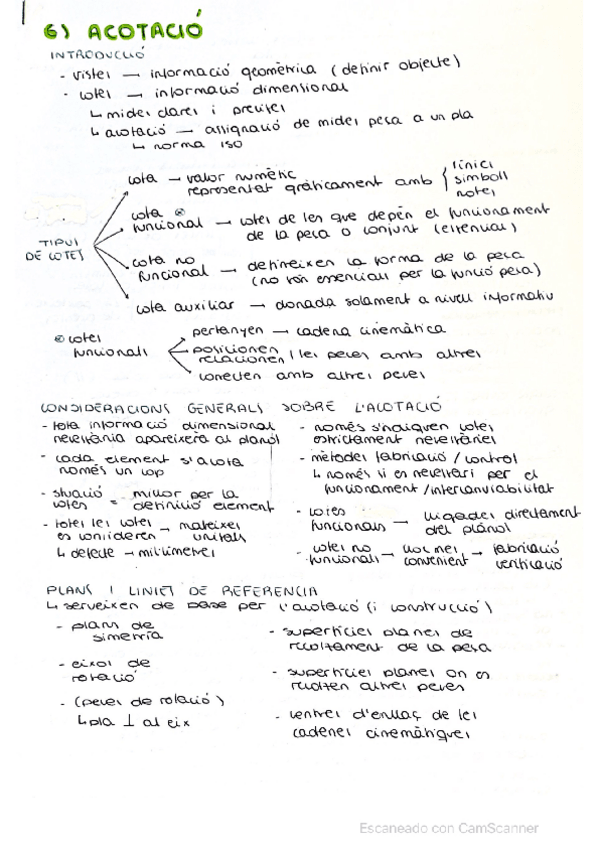 6) ACOTACIÓ
INTRODUCCIÓ
- vistes — informació geomètrica (definir objecte)
- cotes — informació dimensional
↳ mides clares i precises
↳ acotació — assignació de mides peça a un pla
↳ norma ISO
cota — valor numèric
representat gràficament amb { línies
símbols
notes
TIPUS
DE COTES
cota ⊗
funcional — cotes de les que depèn el funcionament
de la peça o conjunt (essencials)
cota no
funcional → defineixen la forma de la peça
(no són essencials per la funció peça)
cota auxiliar → donada solament a nivell informatiu
⊗ cotes
funcionals
pertanyen — cadena cinemàtica
posicionen
relacionen / les peces amb altres
conecten amb altres peces
CONSIDERACIONS GENERALS SOBRE L'ACOTACIÓ
- tota informació dimensional
necessària apareixerà al plànol
- cada element s'acota
només un cop
- situació cotes = millor per la
definició element
- totes les cotes → mateixes
es consideren unitats
↳ defecte — mil·límetres
- només s'indiquen cotes
estrictament necessàries
- mètodes fabricació / control
↳ només si es necessari per el
funcionament / intercanviabilitat
- cotes
funcionals → lligades directament
del plànol
- cotes no
funcionals → lloc més
convenient → fabricació
verificació
PLANS I LINIES DE REFERENCIA
↳ serveixen de base per l'acotació (i construcció)
- plans de
simetria
- eixos de
rotació
- (peces de rotació)
↳ pla ⊥ al eix
- superfícies planes de
recolzament de la peça
- superfícies planes on es
recolzen altres peces
- centres d'enllaç de les
cadenes cinemàtiques
Escaneado con CamScanner